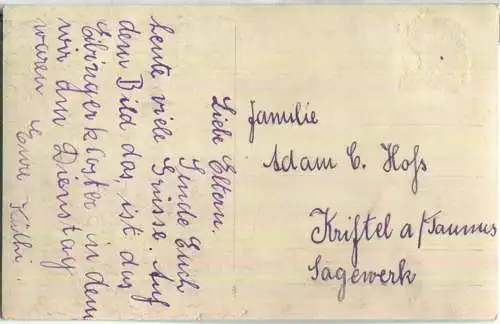 Liebe Eltern.
Sende Euch
heute viele Grüsse. Auf
dem Bild das ist das
Ebingerkloster in dem
wir am Dienstag
waren Eure Käthi.
Familie
Adam C. Hofs
Kriftel a/Taunus
Sagewerk